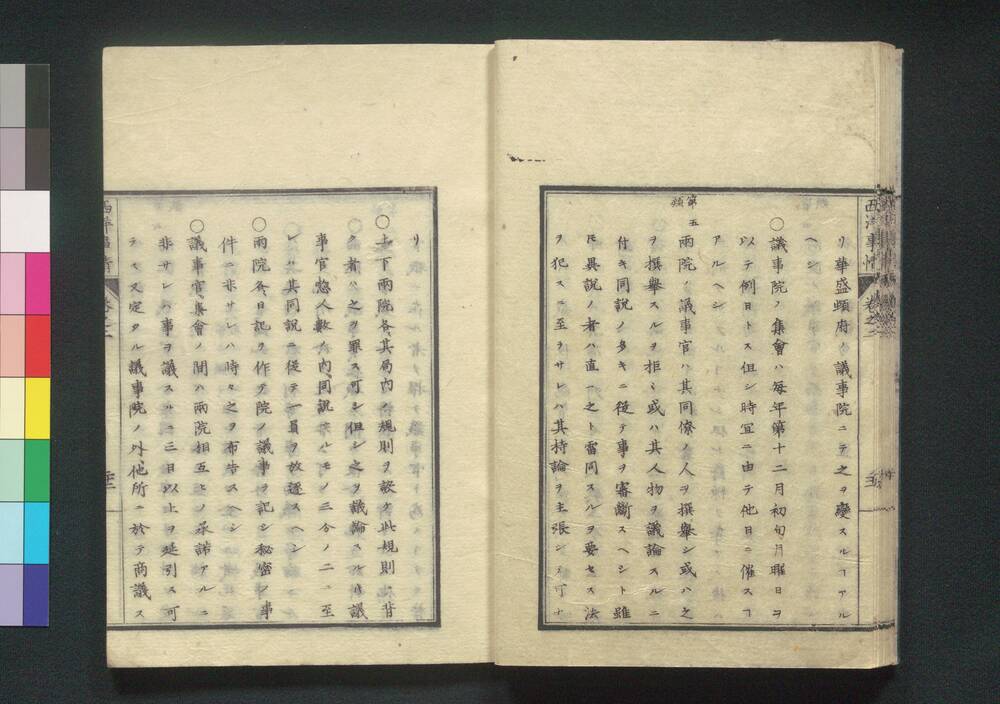 西洋事情
卷之二
リ華盛頓府ノ議事院ニテ之ヲ變スルヿアル
ヘシ
〇議事院ノ集會ハ每年第十二月初旬月曜日ヲ
以テ例日トス但シ時宜ニ由テ他日ニ催スヿ
アルヘシ
第五類
兩院ノ議事官ハ其同僚ノ人ヲ撰擧シ或ハ之
ヲ撰擧スルヲ拒ミ或ハ其人物ヲ議論スルニ
付キ同說ノ多キニ從テ事ヲ審斷スヘシト雖
𪜈異說ノ者ハ直ニ之ト雷同スルヲ要セス法
ヲ犯スニ至ラサレハ其持論ヲ主張シテ可ナ
リ
〇上下兩院各其局内ノ規則ヲ設ケ此規則ニ背
ク者ハ之ヲ罪ス可シ但シ之ヲ議論スル時議
事官惣人數ノ内同說ナルモノ三分ノ二ニ至
レハ其同說ニ從テ一員ヲ放逐スヘシ
〇兩院各日記ヲ作テ院ノ議事ヲ記シ秘密ノ事
件ニ非サレハ時々之ヲ布告スヘシ
〇議事官集會ノ間ハ兩院相互ヒノ承諾アルニ
非サレハ事ヲ議スルニ三日以上ヲ延引ス可
ラス又定タル議事院ノ外他所ニ於テ商議ス
西洋事情
卷之二